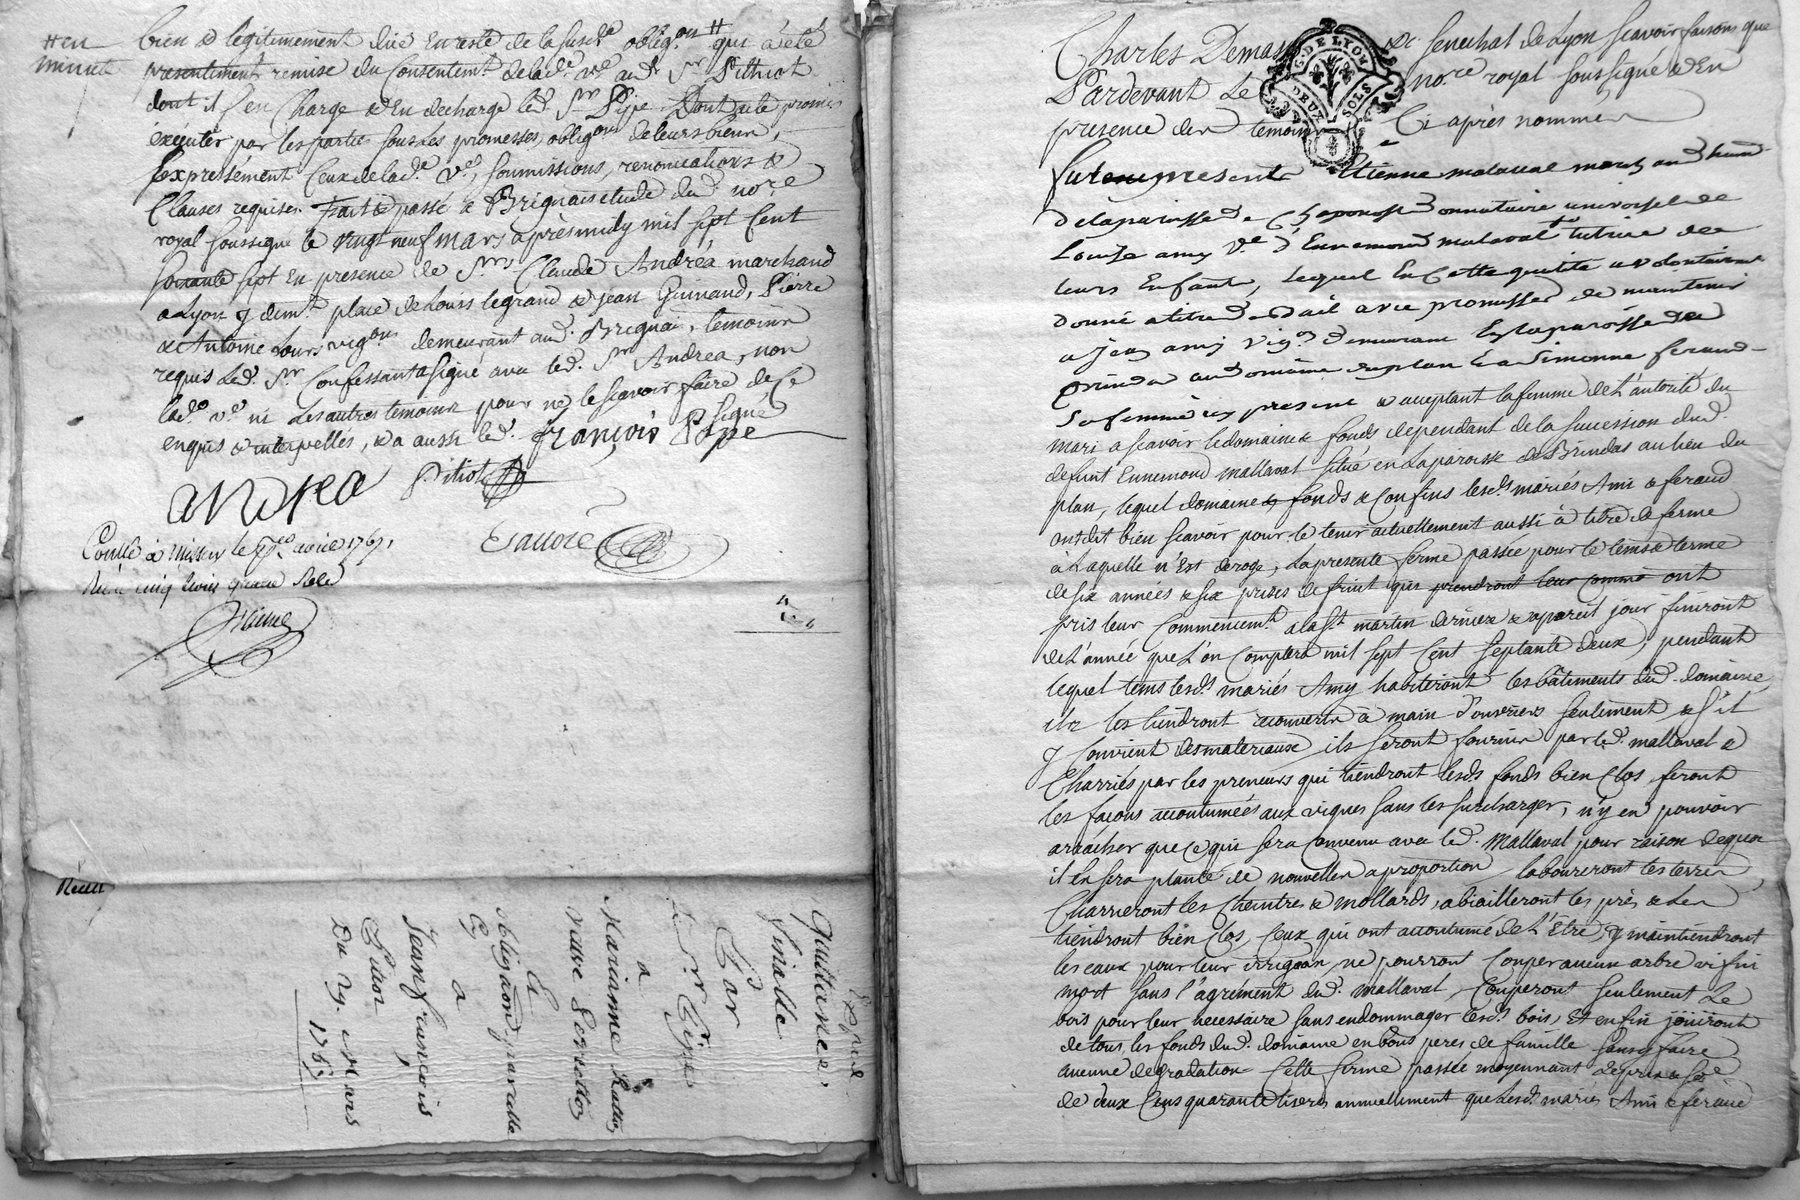 #en
minute
bien & légitimement düe en reste de la susd.e oblig.on # qui a été
présentement remise du consentem.t de lad.e v.e aud. S.r Pithiot
dont il s'en charge & en decharge led. S.r Pipe. Dont acte promis
éxécuter par les parties sous les promesses, oblig.ons de leurs biens,
Expressément ceux de lad.e v.e, soumissions, renonciations &
Clauses requises. Fait & passé à Brignais etude dud. no.re
royal soussigné le vingt neuf mars après midy mil sept cent
soixante sept en presence de S.rs Claude Andréa marchand
a Lyon y dem.t place de Louis le grand & jean Guinand, Pierre
& Antoine vigons demeurant aud. Brignai, temoins
requis led. S.r Confessant a signé avec led. S.r Andréa, non
lad.e v.e ni les autres temoins pour ne le sçavoir faire de ce
enquis & interpellés, & a aussi led. françois Pipe signé
andrea Pitiot
Contllé à Millery le avril 1767,
Reçu cinq livres quatre
Quittance,
finalle
Par
S.r Pipe
a
Marianne
veuve
&
obligation, par celle
Cy a
Jean françois
Pitiot
Du 29. Mars
1767
Expédié
Charles Demas Senechal de Lyon sçavoir faisons que
Pardevant Le no.re royal soussigné & En
presence des temoins Ci après nommés
G. DE LYON
DEUX SOLS
furent presents Etienne malaval march
de la paroisse de Chaponost donnataire universel de
Louise amy v.e d'Ennemond malaval tutrice de
leurs Enfants, lequel En cette qualité a volontairement
donné a titre de bail avec promesses de maintenir
a jean amy vig.on demeurant En la paroisse de
Brindas au domaine du plan & a Simonne feraud
sa femme icy present & acceptant la femme de L'autorité du
mari a sçavoir le domaine & fonds dépendant de la succession dud.
defunt Ennemond Mallaval situé en La paroisse de Brindas au lieu du
plan, lequel domaine & fonds & confins lesd.s mariés Ami & feraud
ont dit bien sçavoir pour le tenir actuellement aussi à titre de ferme
à Laquelle n'Est derogé, La presente ferme passée pour le tems & terme
de six années & six prises de fruit qui prendront leur comme ont
pris leur Commencem.t a la S.t martin derniere & à pareil jour finiront
de L'année que L'on Comptera mil sept cent septante deux, pendant
lequel tems lesd.s mariés Amy habiteront les bâtiments dud. domaine,
ils les tiendront recouverts à main d'ouvriers seulement & s'il
y Convient des materiaux ils seront fournis par led. mallaval &
Charriés par les preneurs qui tiendront lesd.s fonds bien clos, feront
les façons accoutumées aux vignes sans les surcharger, n'y en pouvoir
arracher que ce qui sera convenu avec led. Mallaval pour raison de quoi
il en sera planté de nouvelles a proportion, laboureront les terres,
Charrieront les Cheintres & mollards, abiailleront les prés & Les
tiendront bien clos, ceux qui ont accoutumé de L'être, y maintiendront
les eaux pour leur irrigaon, ne pourront couper aucun arbre vif ni
mort sans l'agrement dud. Mallaval, Couperont seulement Le
bois pour leur necessaire sans endommager lesd.s bois, Et enfin joüiront
de tous les fonds dud. domaine en bons peres de famille sans y faire
aucune degradation. Cette ferme passée moyennant Le prix & so.e
de deux Cens quarante livres annuellement que lesd.s mariés Ami & feraud